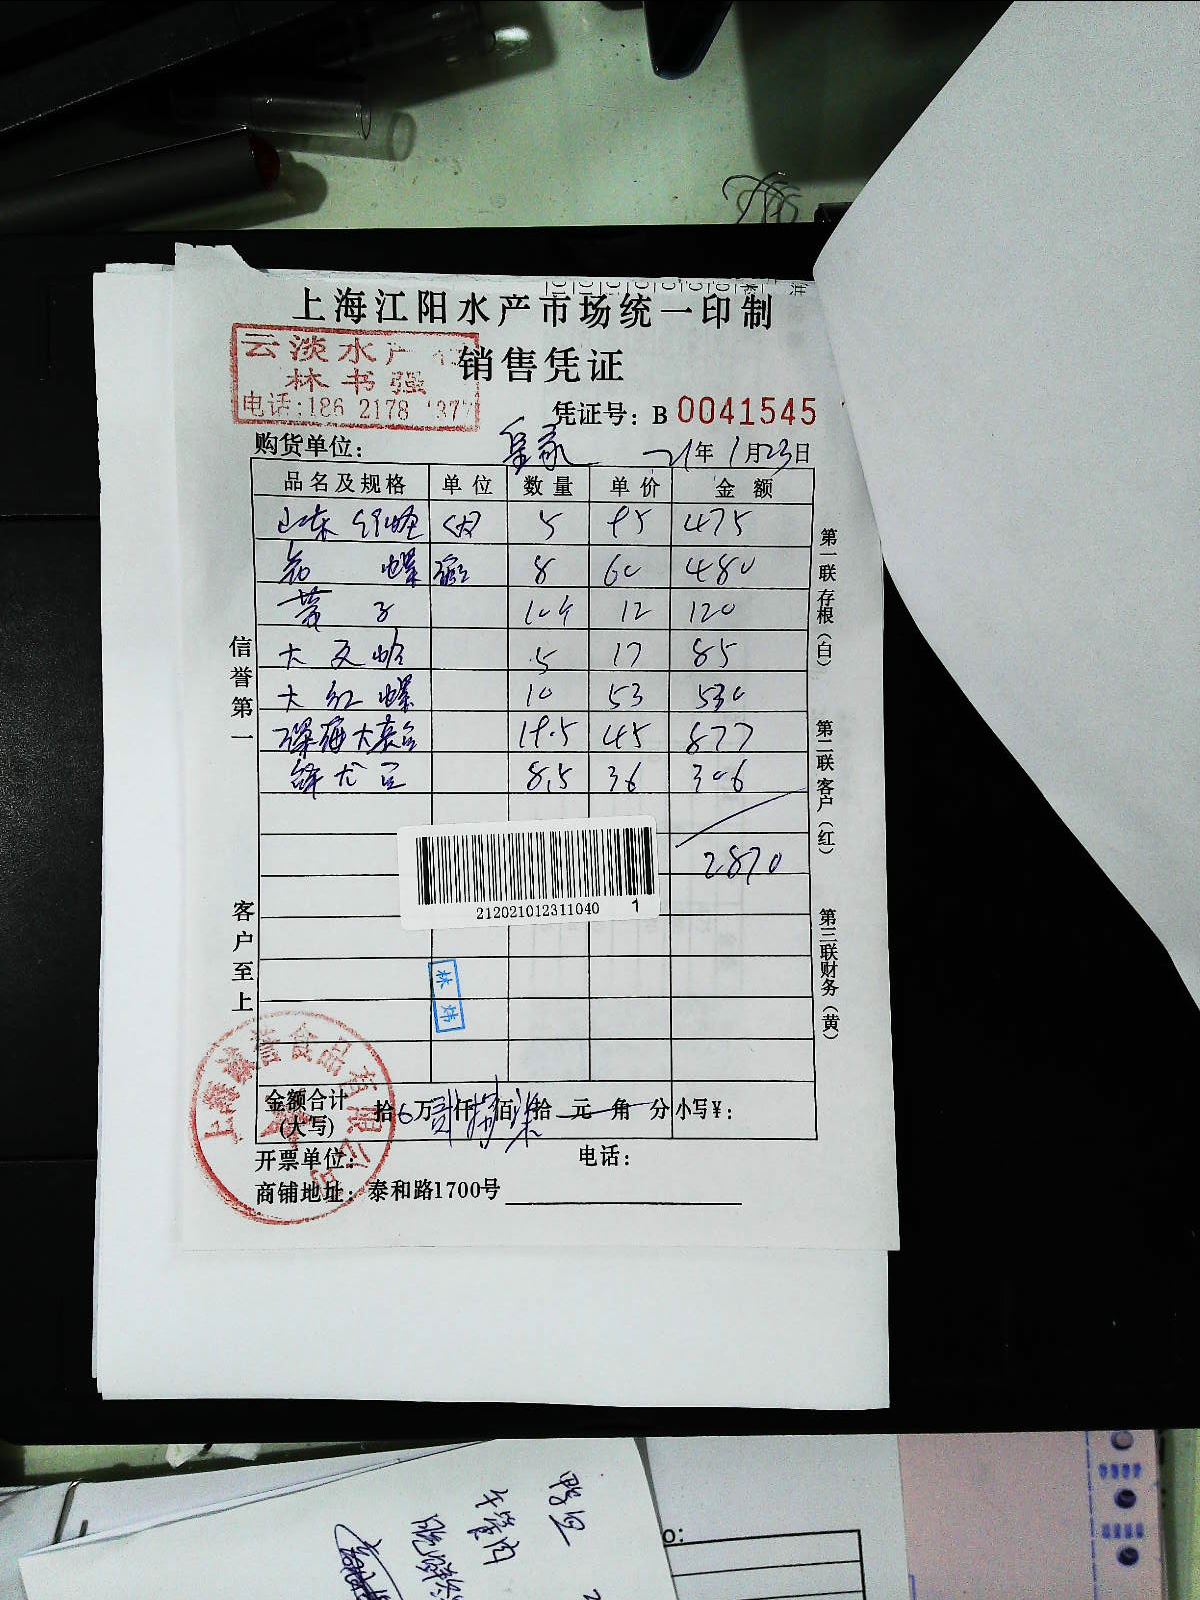 上海江阳水产市场统一印制
云淡水产
林书强
电话:186 2178 377
销售凭证
凭证号: B 0041545
购货单位: 21年1月23日
品名及规格 单位 数量 单价 金额
山东 5 95 475
螺 8 60 480
黄子 10个 12 120
大文蛤 5 17 85
大红螺 10 53 530
深海大 19.5 45 877
8.5 36 306
2870
212021012311040 1
林炜
信誉第一
客户至上
第一联存根(白)
第二联客户(红)
第三联财务(黄)
上海 誉食品有限公司
金额合计(大写) 拾 万贰仟捌佰柒拾 元 角 分 小写¥:
开票单位: 电话:
商铺地址: 泰和路1700号
o: